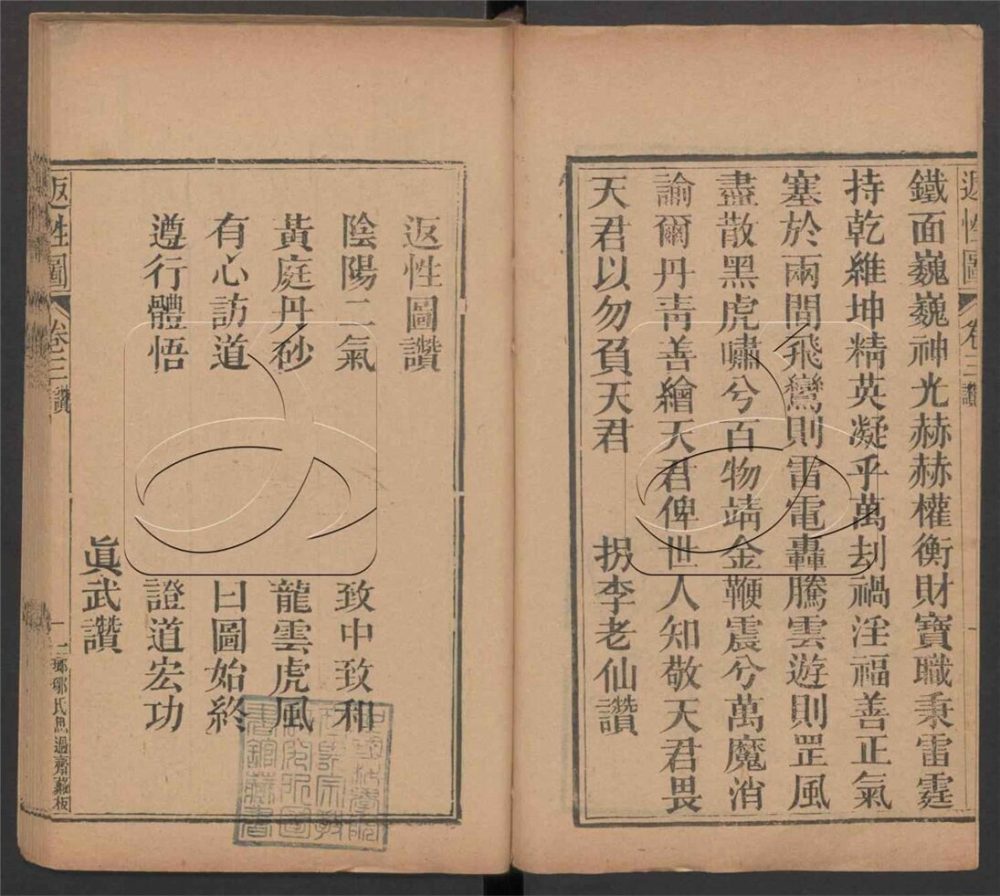 返性圖 卷三 讚
鐵面巍巍神光赫赫權衡財寶職秉雷霆
持乾維坤精英凝乎萬刦禍淫福善正氣
塞於兩間飛鸞則雷電轟騰雲遊則罡風
盡散黑虎嘯兮百物靖金鞭震兮萬魔消
諭爾丹靑善繪天君俾世人知敬天君畏
天君以勿負天君 拐李老仙讚
返性圖讚
陰陽二氣 致中致和
黃庭丹砂 龍雲虎風
有心訪道 曰圖始終
遵行體悟 證道宏功
眞武讚
返性圖 卷三 讚 一 鄒氏思過齋藏板